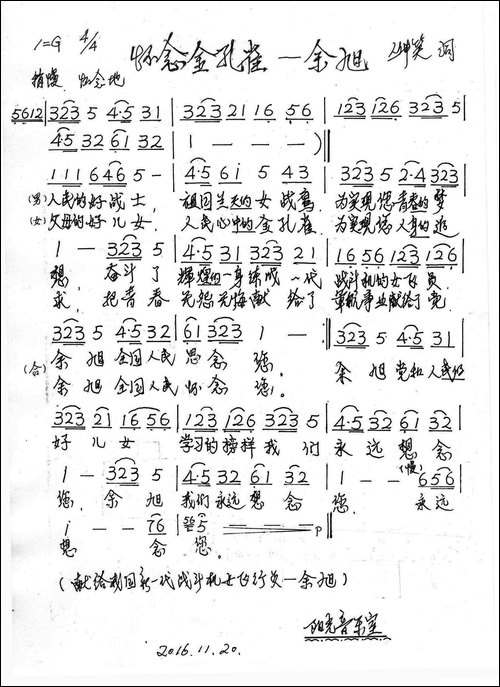 1=G 4/4 怀念金孔雀—余旭 坤笑 词
稍慢 怀念地
5612 | 323 5 4·5 31 | 323 21 16 56 | 123 126 323 5 |
45 32 61 32 | 1 — — — ) ‖
111 646 5 - | 4·5 6i 5 43 | 323 5 2·4 323 |
(男) 人民的好战士, 祖国兰天的女战鹰 为实现您青春的梦
(女) 父母的好儿女, 人民心中的金孔雀 为实现您人身的追
1 — 323 5 | 4·5 31 323 21 | 16 56 123 126 |
想, 奋斗了 辉煌的一身 练成一代 战斗机的女飞员
求, 把青春 无怨无悔献给了 军航事业献给了党
323 5 4·5 32 | 61 323 1 — :‖ 323 5 4·5 31 |
(合) 余旭全国人民思念您。 余旭党和人民的
余旭全国人民怀念您。
323 21 16 56 | 123 126 323 5 | 4·5 32 61 32 |
好儿女 学习的榜样我们 永远想念
(慢)
1 — 323 5 | 4·5 32 61 32 | 1 — — 656 |
您, 余旭 我们永远想念 您. 永远
i — — 76 | 5 — — — p ‖
想 念 您。
(献给我国新一代战斗机女飞行员—余旭)
阳光音乐室
2016.11.20.